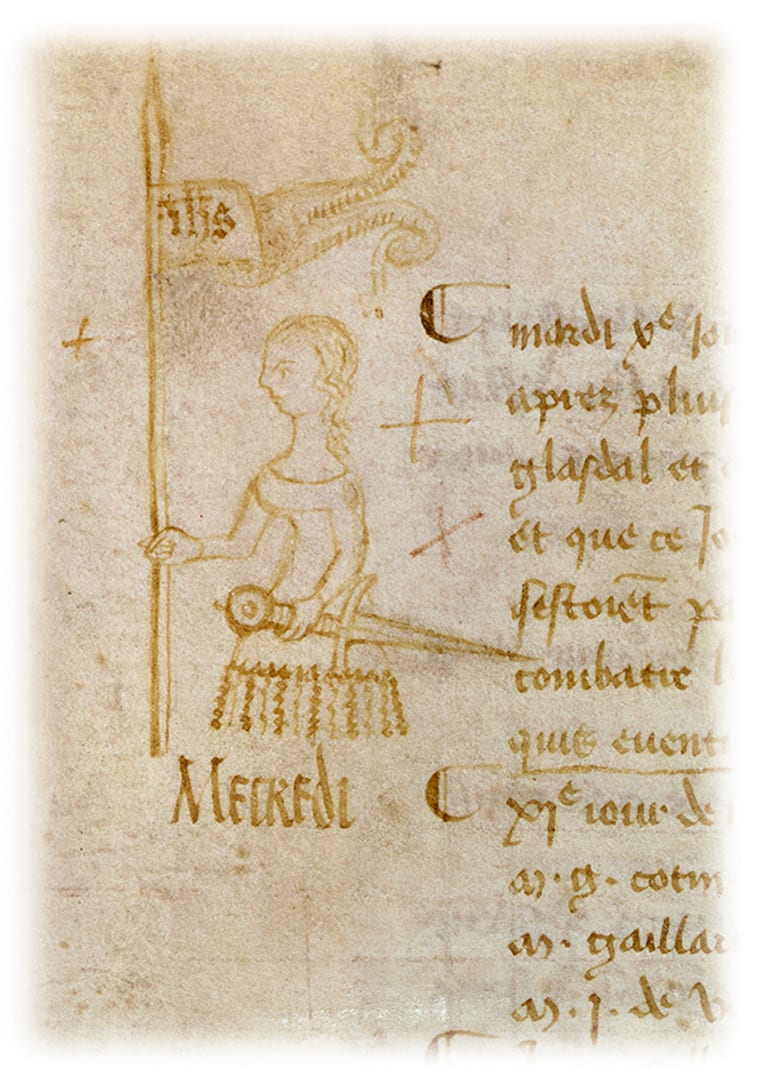 ihs
mardi xe jo
aprez plus
glasdal et
et que ce jo
sestoiēt p
combatre l
quis event
Mecredi
xje iour de
m. g. cotin
m. gaillar
m. j. de b